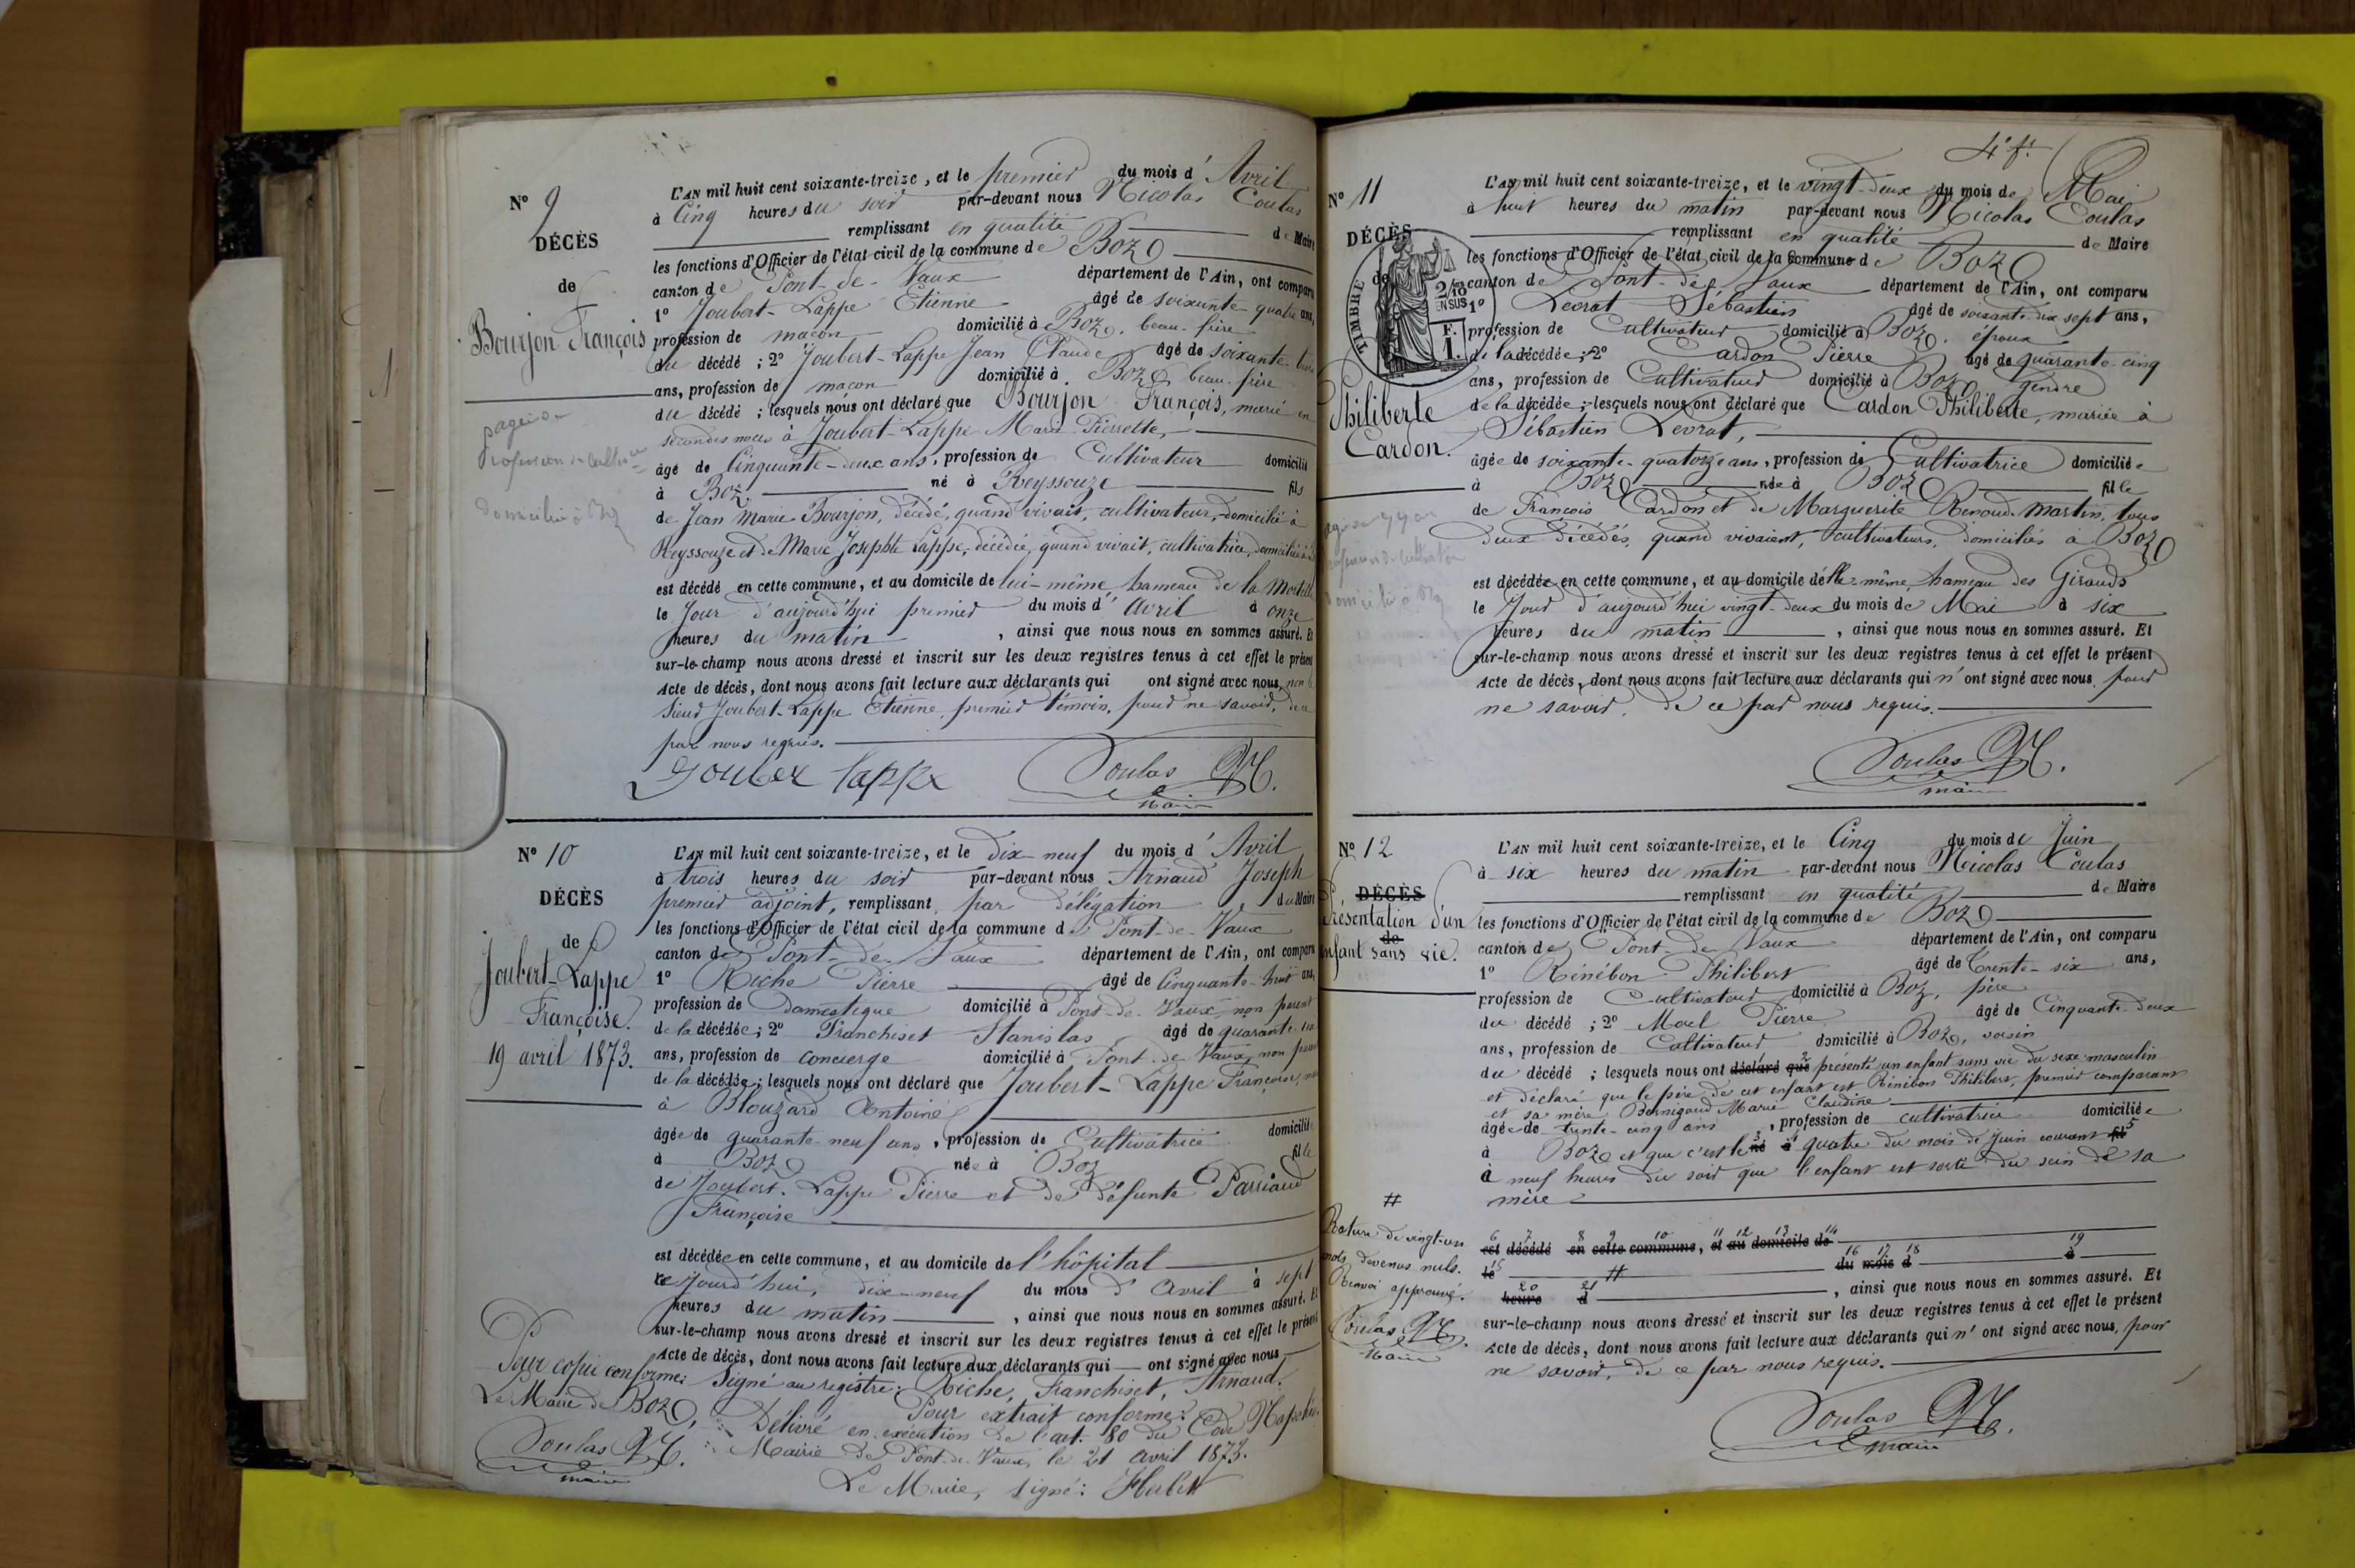 N° 9
DÉCÈS
de
Bourjon François
L'AN mil huit cent soixante-treize, et le premier du mois d'Avril
à Cinq heures du soir par-devant nous Nicolas Coulas
remplissant en qualité de Maire
les fonctions d'Officier de l'état civil de la commune de Boz
canton de Pont-de-Vaux département de l'Ain, ont comparu
1° Joubert-Lappe Etienne âgé de soixante-quatre ans,
profession de maçon domicilié à Boz, beau-frère
du décédé ; 2° Joubert-Lappe Jean Claude âgé de soixante
ans, profession de maçon domicilié à Boz, beau-frère
du décédé ; lesquels nous ont déclaré que Bourjon François, marié en
secondes noces à Joubert-Lappe Marie Pierrette,
âgé de Cinquante-deux ans, profession de Cultivateur domicilié
à Boz, né à Reyssouze fils
de Jean Marie Bourjon, décédé, quand vivait, cultivateur, domicilié à
Reyssouze et de Marie Josephte Lappe, décédée, quand vivait, cultivatrice, domiciliée
est décédé en cette commune, et au domicile de lui-même, hameau de la
le Jour d'aujourd'hui premier du mois d'avril à onze
heures du matin , ainsi que nous nous en sommes assuré. Et
sur-le-champ nous avons dressé et inscrit sur les deux registres tenus à cet effet le présent
Acte de décès, dont nous avons fait lecture aux déclarants qui ont signé avec nous, non le
Sieur Joubert-Lappe Etienne, premier témoin, pour ne savoir, de ce
par nous requis.
Jouber lappe Coulas N
maire
N° 10
DÉCÈS
de
Joubert-Lappe
Françoise.
19 avril 1873.
L'AN mil huit cent soixante-treize, et le dix-neuf du mois d'Avril
à trois heures du soir par-devant nous Arnaud Joseph
premier adjoint, remplissant par délégation du Maire
les fonctions d'Officier de l'état civil de la commune de Pont-de-Vaux
canton de Pont-de-Vaux département de l'Ain, ont comparu
1° Riche Pierre âgé de Cinquante-huit ans,
profession de Domestique domicilié à Pont-de-Vaux, non parent
de la décédée ; 2° Franchiset Stanislas âgé de quarante-un
ans, profession de concierge domicilié à Pont-de-Vaux, non parent
de la décédée ; lesquels nous ont déclaré que Joubert-Lappe Françoise,
à Blouzard Antoine
âgée de quarante-neuf ans, profession de Cultivatrice domiciliée
à Boz née à Boz fille
de Joubert-Lappe Pierre et de défunte Parriaud
Françoise
est décédée en cette commune, et au domicile de l'hôpital
ce jourd'hui, dix-neuf du mois d'avril à sept
heures du matin , ainsi que nous nous en sommes assuré. Et
sur-le-champ nous avons dressé et inscrit sur les deux registres tenus à cet effet le présent
Acte de décès, dont nous avons fait lecture aux déclarants qui ont signé avec nous
Signé au registre: Riche, Franchiset, Arnaud.
Pour extrait conforme:
Délivré en exécution de l'art. 80 du Code Napoléon
Mairie de Pont-de-Vaux, le 21 avril 1873.
Le Maire, signé:
Pour copie conforme:
Le Maire de Boz,
Coulas N
maire
4e ft
N° 11
DÉCÈS
de
TIMBRE
2/10 EN SUS
F. 1.
Philiberte
Cardon.
L'AN mil huit cent soixante-treize, et le vingt-deux du mois de Mai
à huit heures du matin par-devant nous Nicolas Coulas
remplissant en qualité de Maire
les fonctions d'Officier de l'état civil de la commune de Boz
canton de Pont-de-Vaux département de l'Ain, ont comparu
1° Levrat Sébastien âgé de soixante-dix sept ans,
profession de Cultivateur domicilié à Boz, époux
de la décédée ; 2° Cardon Pierre âgé de quarante-cinq
ans, profession de Cultivateur domicilié à Boz, gendre
de la décédée ; lesquels nous ont déclaré que Cardon Philiberte, mariée à
Sébastien Levrat,
âgée de soixante-quatorze ans, profession de Cultivatrice domiciliée
à Boz née à Boz fille
de François Cardon et de Marguerite Renoud-Martin, tous
deux décédés, quand vivaient, cultivateurs, domiciliés à Boz
est décédée en cette commune, et au domicile d'elle-même, hameau des Girauds
le Jour d'aujourd'hui vingt-deux du mois de Mai à six
heures du matin , ainsi que nous nous en sommes assuré. Et
sur-le-champ nous avons dressé et inscrit sur les deux registres tenus à cet effet le présent
Acte de décès, dont nous avons fait lecture aux déclarants qui n'ont signé avec nous, pour
ne savoir, de ce par nous requis.
Coulas N
maire
N° 12
DÉCÈS
Présentation d'un
de
enfant sans vie.
L'AN mil huit cent soixante-treize, et le Cinq du mois de Juin
à six heures du matin par-devant nous Nicolas Coulas
remplissant en qualité de Maire
les fonctions d'Officier de l'état civil de la commune de Boz
canton de Pont-de-Vaux département de l'Ain, ont comparu
1° Rénébon Philibert âgé de Trente-six ans,
profession de Cultivateur domicilié à Boz, père
du décédé ; 2° Morel Pierre âgé de Cinquante-deux
ans, profession de Cultivateur domicilié à Boz, voisin
du décédé ; lesquels nous ont déclaré que 2 présenté un enfant sans vie du sexe masculin
et déclaré que le père de cet enfant est Rénébon Philibert, premier comparant
et sa mère Bernigaud Marie Claudine
âgée de trente-cinq ans, profession de cultivatrice domiciliée
à Boz et que c'est le né 3 à 4 quatre du mois de Juin courant fil 5
à neuf heures du soir que l'enfant est sorti du sein de sa
mère
6 7 8 9 10 11 12 13 14
est décédé en cette commune, et au domicile de
15 le # 16 17 18 du mois d 19 à
20 heure 21 d , ainsi que nous nous en sommes assuré. Et
sur-le-champ nous avons dressé et inscrit sur les deux registres tenus à cet effet le présent
Acte de décès, dont nous avons fait lecture aux déclarants qui n'ont signé avec nous, pour
ne savoir, de ce par nous requis.
Coulas N
maire
#
Rature de vingt-un
mots devenus nuls.
Renvoi approuvé.
Coulas N
Maire